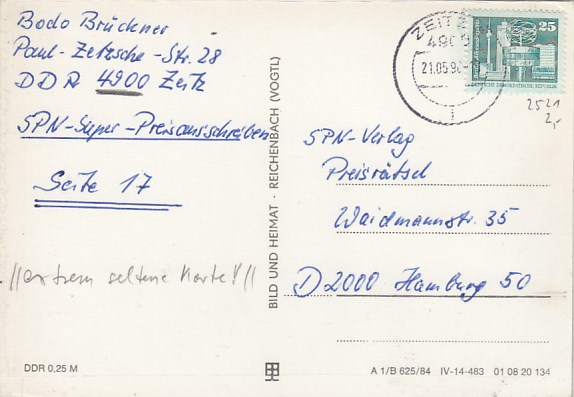 Bodo Brückner
Paul-Zetzsche-Str. 28
DDR 4900 Zeitz
SPN-Super-Preisausschreiben
Seite 17
//extrem seltene Karte!//
DDR 0,25 M
BILD UND HEIMAT · REICHENBACH (VOGTL)
ZEITZ
490
21.05.90
25
2521
2,-
SPN-Verlag
Preisrätsel
Waidmannstr. 35
D 2000 Hamburg 50
A 1/B 625/84 IV-14-483 01 08 20 134